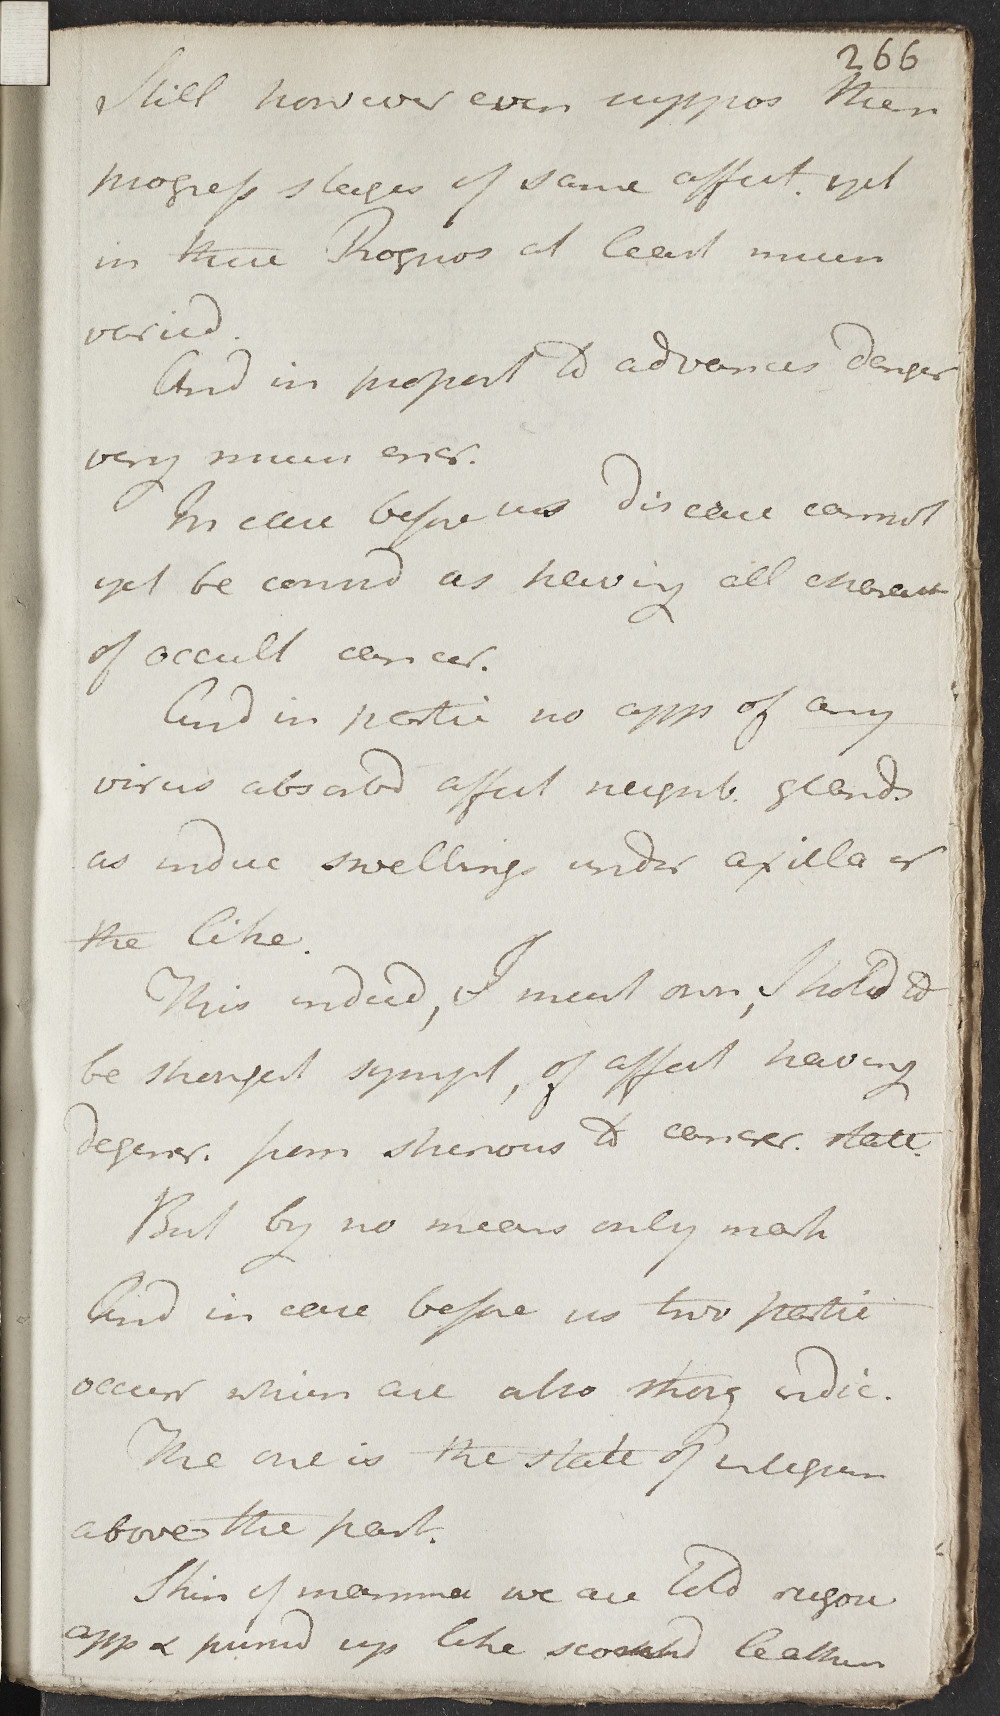 266
Still however even suppos them
progress stages of same affect. yet
in these Prognos at least much
varied.
And in proport to advances danger
very much encr.
In case before us disease cannot
yet be consid as having all charact
of occult cancer.
And in partic no app of any
virus absorbd affect neighb. glands
as induc swellings under axilla or
the like.
This indeed, I must own, I hold to
be strongest sympt, of affect having
degener. from skirrous to cancer. state.
But by no means only mark
And in case before us two partic
occurr which are also strong indic.
The one is the state of integum
above the part.
Skin of mamma we are told rugou
app & pursd up like scorchd leather